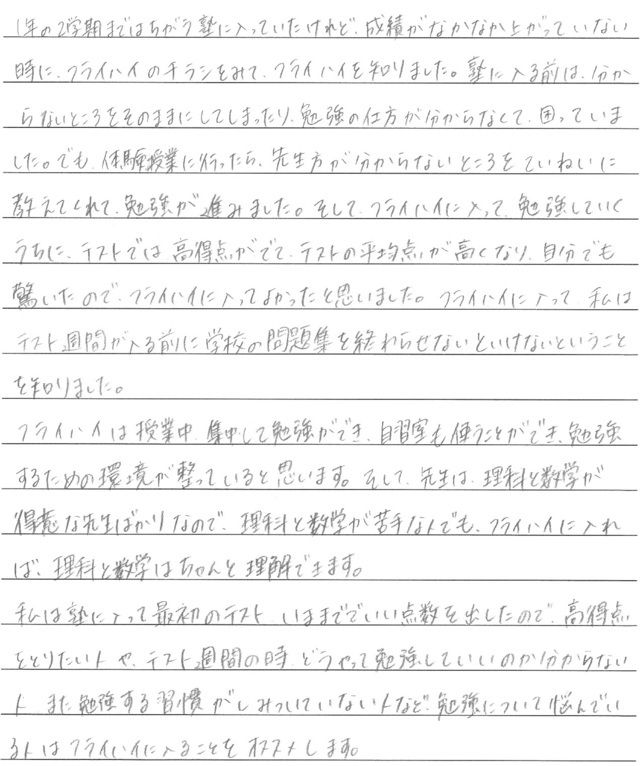 1年の2学期まではちがう塾に入っていたけれど、成績がなかなか上がっていない
時に、フライハイのチラシをみて、フライハイを知りました。塾に入る前は、分か
らないところをそのままにしてしまったり、勉強の仕方が分からなくて、困っていま
した。でも、体験授業に行ったら、先生方が分からないところをていねいに
教えてくれて、勉強が進みました。そして、フライハイに入って、勉強していく
うちに、テストでは高得点がでて、テストの平均点が高くなり、自分でも
驚いたので、フライハイに入ってよかったと思いました。フライハイに入って、私は
テスト週間が入る前に学校の問題集を終わらせないといけないということ
を知りました。
フライハイは授業中、集中して勉強ができ、自習室も使うことができ、勉強
するための環境が整っていると思います。そして、先生は、理科と数学が
得意な先生ばかりなので、理科と数学が苦手な人でも、フライハイに入れ
ば、理科と数学はちゃんと理解できます。
私は塾に入って最初のテスト、いままででいい点数を出したので、高得点
をとりたい人や、テスト週間の時、どうやって勉強していいのか分からない
人、また勉強する習慣がしみついていない人など、勉強について悩んでい
る人はフライハイに入ることをオススメします。